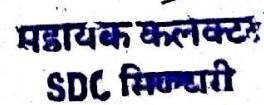 सहायक कलक्टर
SDC सिणधरी